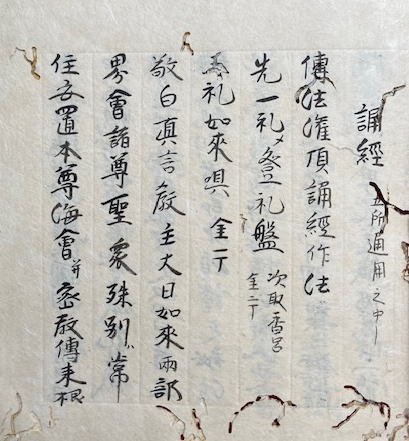 誦經 五所通用之中
傳法灌頂誦經作法
先一礼〻登礼盤 次取香呂 金二丁
三礼如來唄 金一丁
敬白真言教主大日如來兩部
界會諸尊聖衆殊別常
住安置本尊海會并密教傳来根